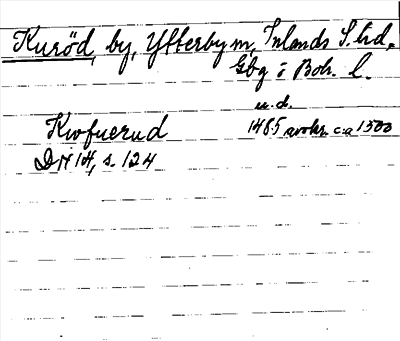 Kuröd, by, Ytterby m, Inlands S. hd.
Gbg o Boh. L.
u.d.
Kwfuerud 1485 avskr. ca 1500
DN 14, s. 124